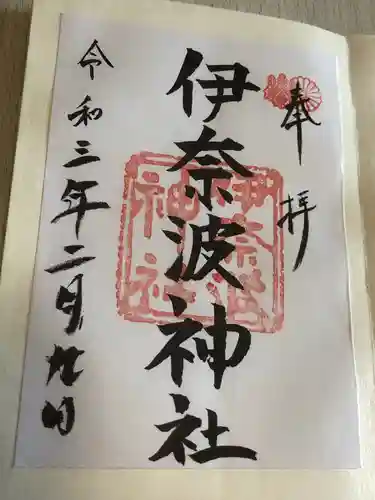 奉拝
伊奈波神社
令和三年二月九日
伊奈波
神社